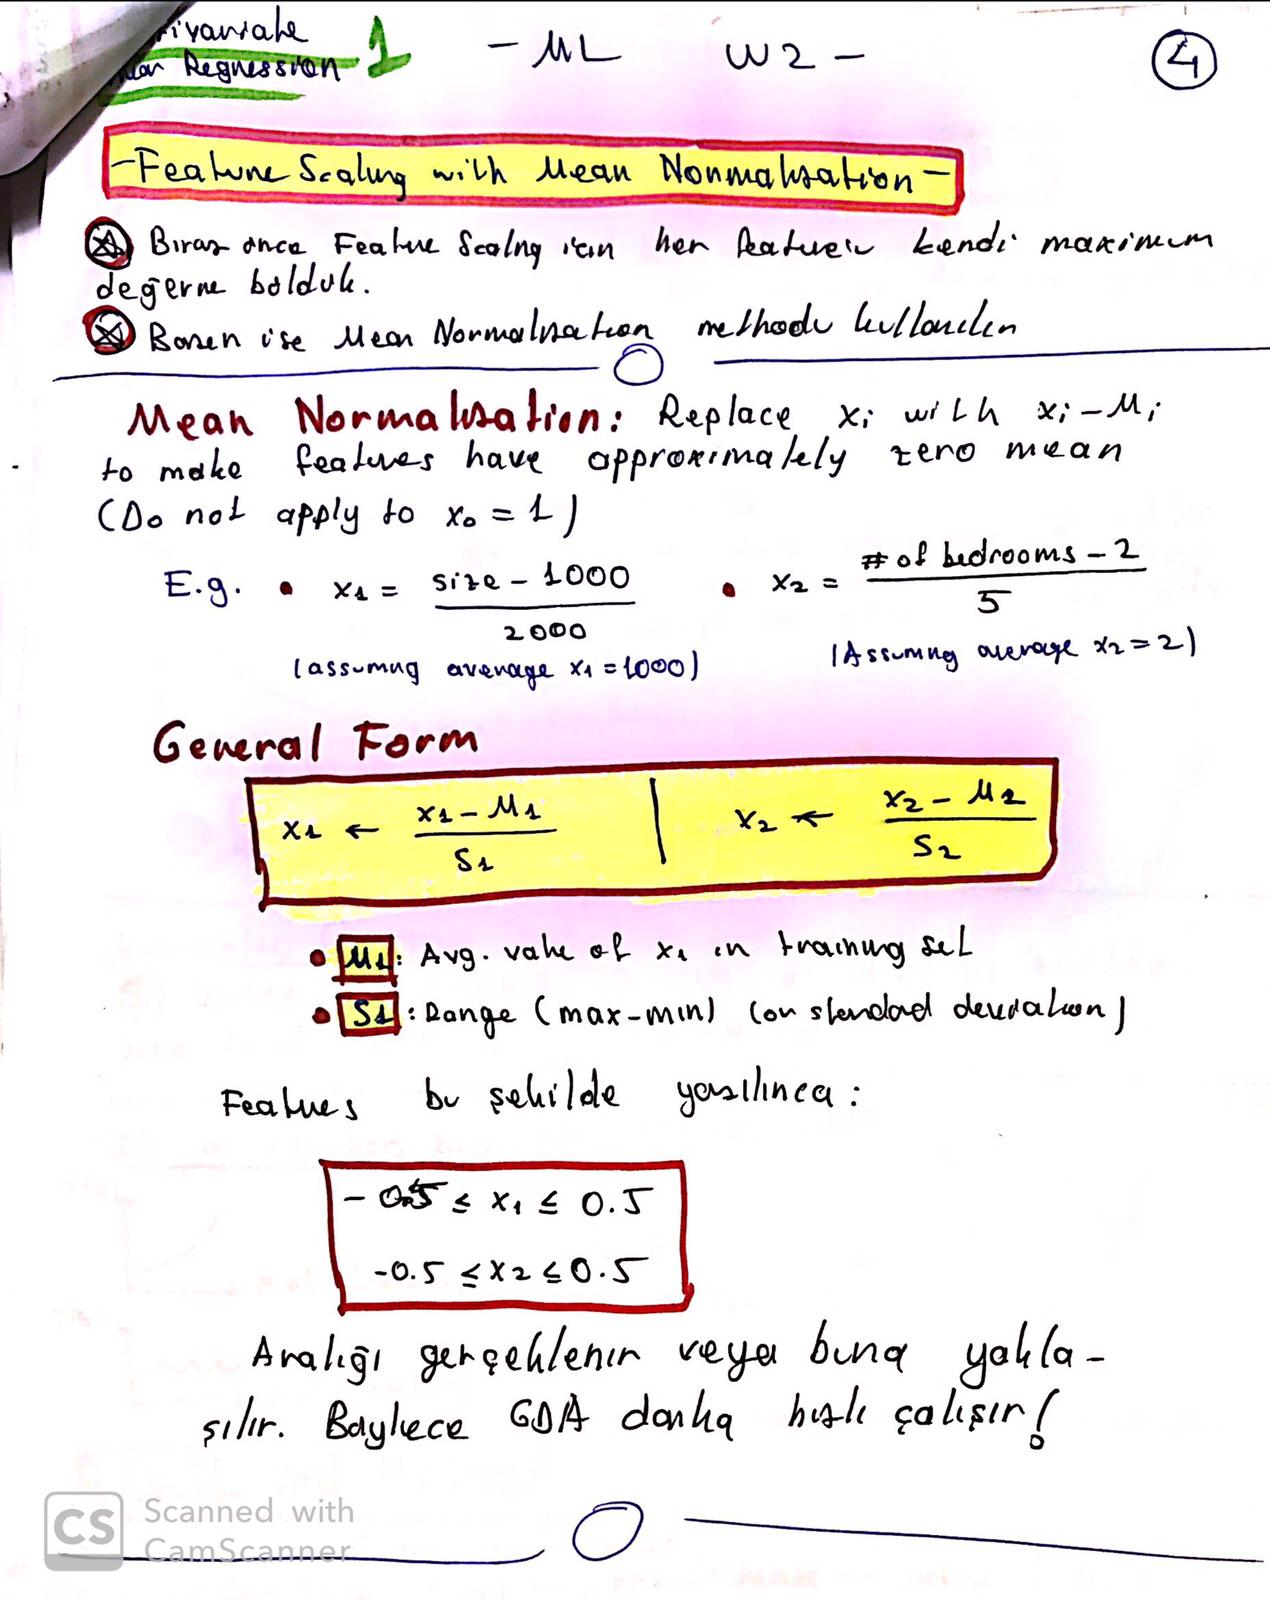 ivariate
Regression 1
- ML W2 -
4
- Feature Scaling with Mean Normalisation -
Biraz önce Feature Scaling için her feature'ı kendi maximum
değerine böldük.
Bazen ise Mean Normalisation methodu kullanılır
Mean Normalisation: Replace xi with xi - μi
to make features have approximately zero mean
(Do not apply to x0 = 1)
E.g. • x1 = (size - 1000) / 2000 • x2 = (# of bedrooms - 2) / 5
(assuming average x1 = 1000) (Assuming average x2 = 2)
General Form
x1 ← (x1 - μ1) / S1 | x2 ← (x2 - μ2) / S2
• μ1: Avg. value of x1 in training set
• S1: Range (max-min) (or standard deviation)
Features bu şekilde yazılınca:
-0.5 ≤ x1 ≤ 0.5
-0.5 ≤ x2 ≤ 0.5
Aralığı gerçeklenir veya buna yakla-
şılır. Böylece GDA daha hızlı çalışır!
CS Scanned with
CamScanner